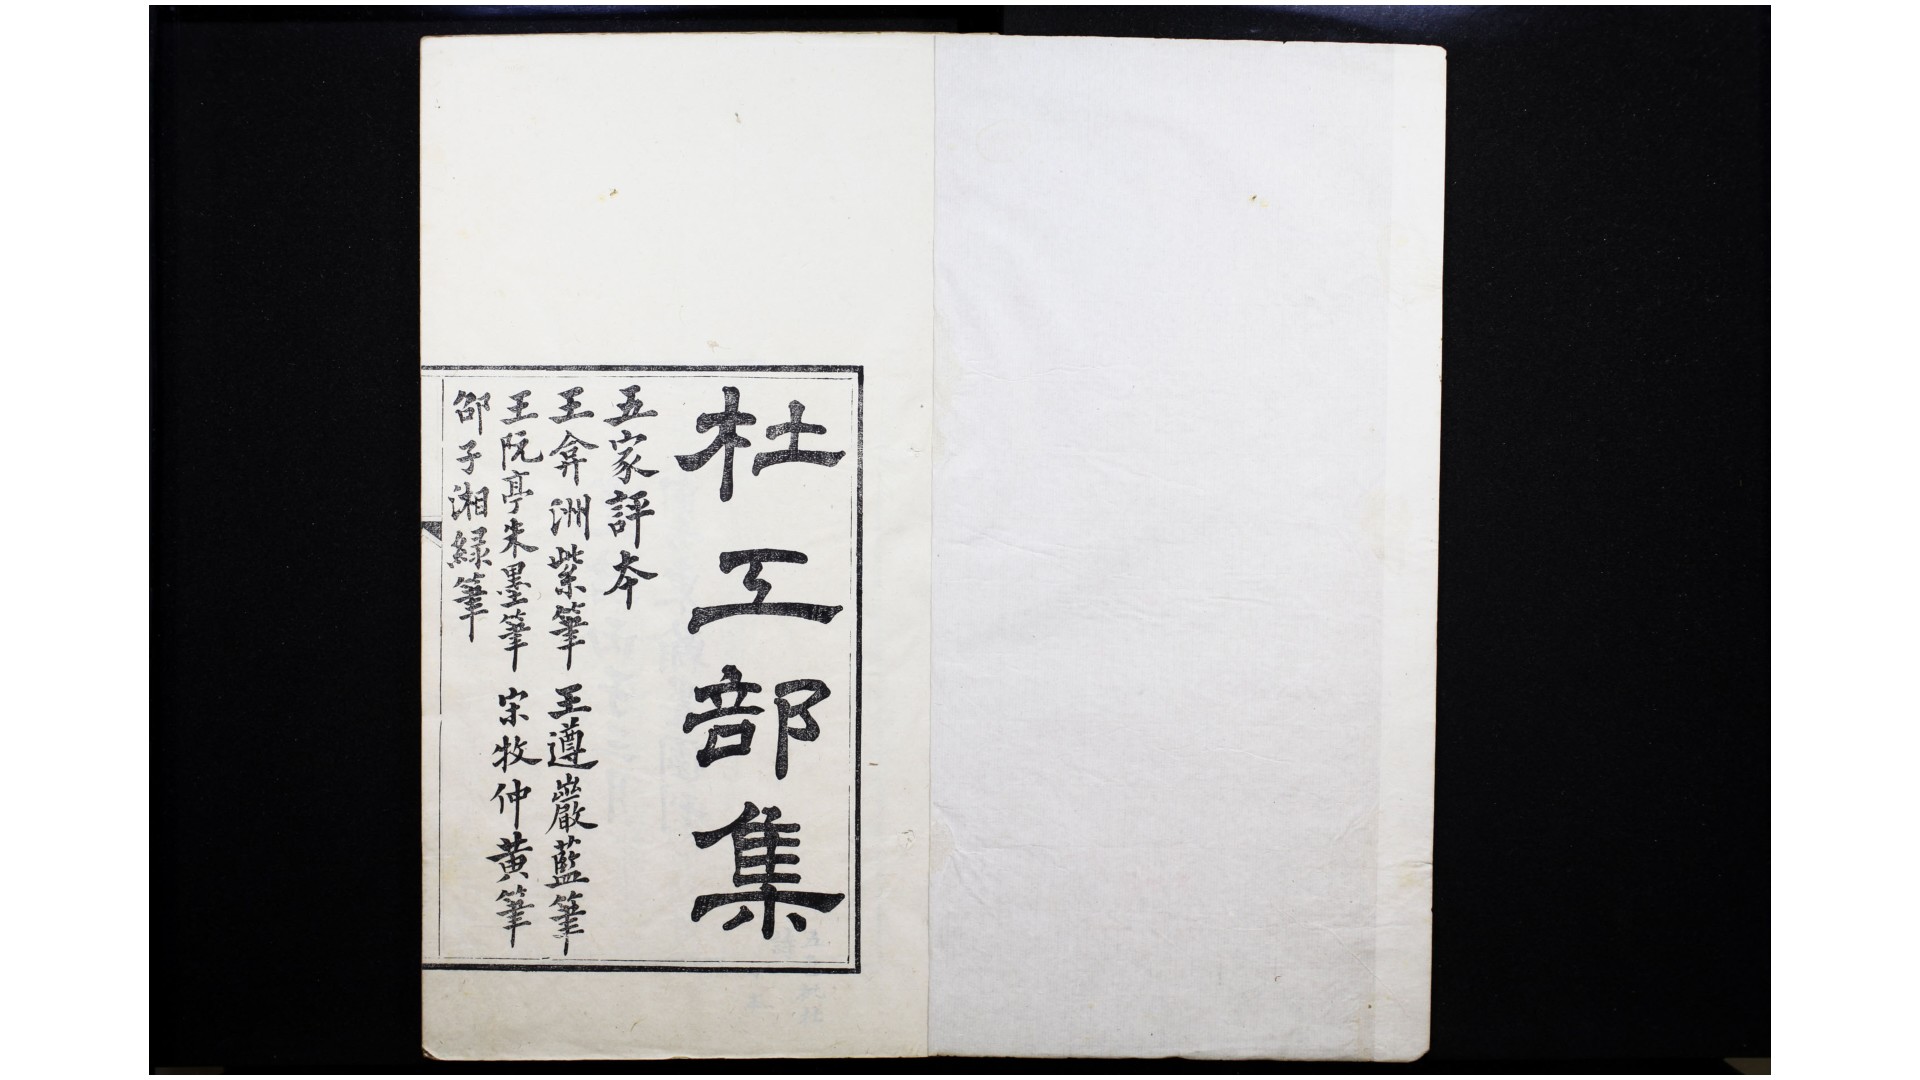 杜工部集
五家評本
王弇洲紫筆 王遵巖藍筆
王阮亭朱墨筆 宋牧仲黄筆
邵子湘緑筆